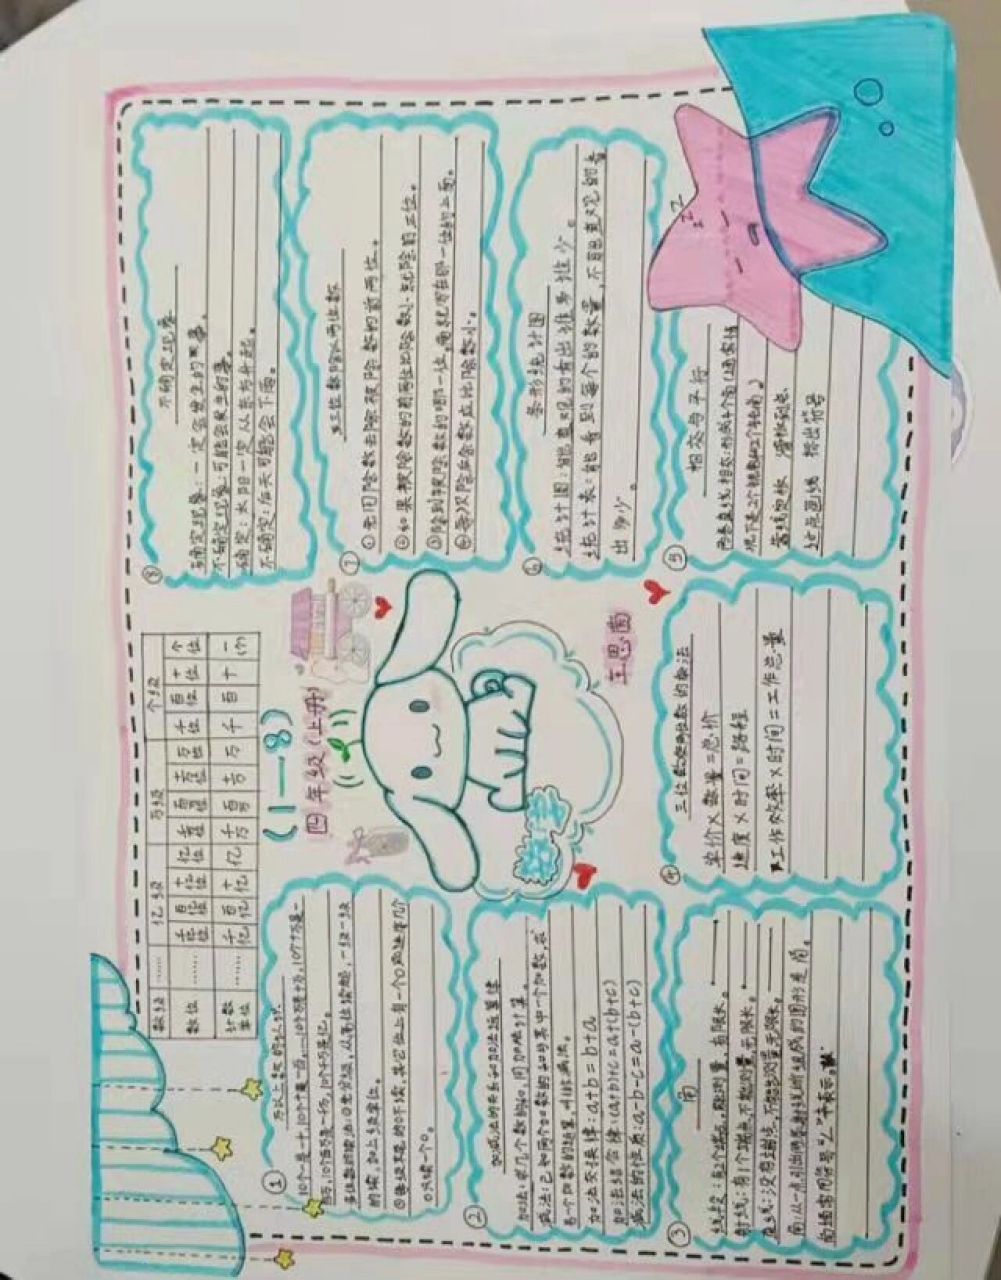 数级 …… 亿级 万级 个级
数位 …… 千亿位 百亿位 十亿位 亿位 千万位 百万位 十万位 万位 千位 百位 十位 个位
计数单位 千亿 百亿 十亿 亿 千万 百万 十万 万 千 百 十 一(个)
(1—8)
四年级(上册)
数学
王思茵
① 万以上数的认识
10个一是十,10个十是一百,……10个万是十万,10个十万是一
百万,10个百万是一千万,10个千万是亿。
的读,加上级单位。
只读一个0。
② 加减法的关系和加法运算律
加法:求几个数的和,用加法计算。
减法:已知两个加数的和与其中一个加数,求
另一个加数的运算,叫做减法。
加法交换律:a+b=b+a
加法结合律:(a+b)+c=a+(b+c)
减法的性质:a-b-c=a-(b+c)
③ 角
线段:有2个端点,能测量,有限长。
射线:有1个端点,不能测量,无限长。
直线:没有端点,不能测量,无限长。
角:从一点引出两条射线所组成的图形是角。
角通常用符号“∠”来表示。
④ 三位数乘两位数的乘法
单价×数量=总价
速度×时间=路程
工作效率×时间=工作总量
⑤ 相交与平行
两条直线相交:形成4个角(通常情
况下是2个锐角和2个钝角。)
过点画线 标出符号
⑥ 条形统计图
统计图:能直观的看出谁多谁少。
统计表:能看到每个的数量,不能直观的看
出多少。
⑦ 三位数除以两位数
①先用除数去除被除数的前两位。
②如果被除数的前两位比除数小就除前三位。
③除到被除数的哪一位,商就写在那一位的上面。
④每次除后余数应比除数小。
⑧ 不确定现象
确定现象:一定会发生的事。
不确定现象:可能会发生的事。
确定:太阳一定从东方升起。
不确定:后天可能会下雨。
z z Z